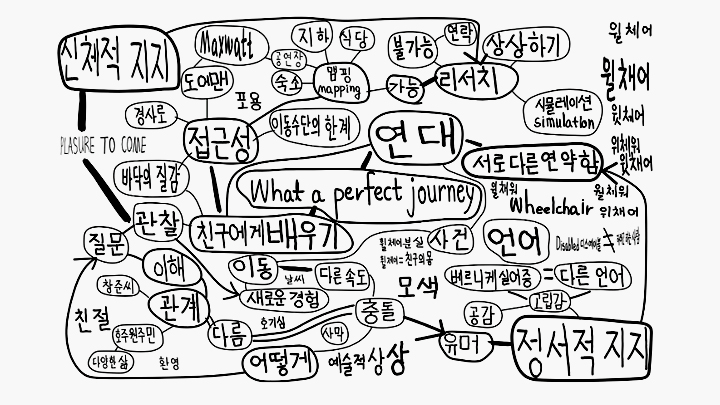 신체적 지지
Maxwatt
지하
식당
공연장
숙소
맵핑
mapping
불가능
연락
상상하기
가능
리서치
도어맨
포용
경사로
접근성
이동수단의 한계
시뮬레이션
simulation
휠체어
윌채어
윗체어
위체워
윗채어
PLASURE TO COME
연대
서로 다른 연약함
바닥의 질감
What a perfect journey
윌체워
Wheelchair
월체워
위체어
관찰
친구에게 배우기
질문
이해
이동
날씨
다른 속도
새로운 경험
휠체어 분실
휠체어 = 친구의 몸
사건
언어
Disabled 디스에이블
≠
베르니케 실어증 = 다른 언어
모색
고립감
공감
창준씨
친절
관계
호주원주민
다양한 삶
환영
다름
호기심
사막
충돌
어떻게
예술적 상상
유머
정서적 지지